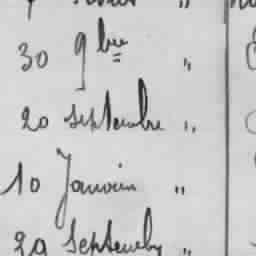 30 9bre "
20 septembre "
10 Janvier "
29 Septembre "